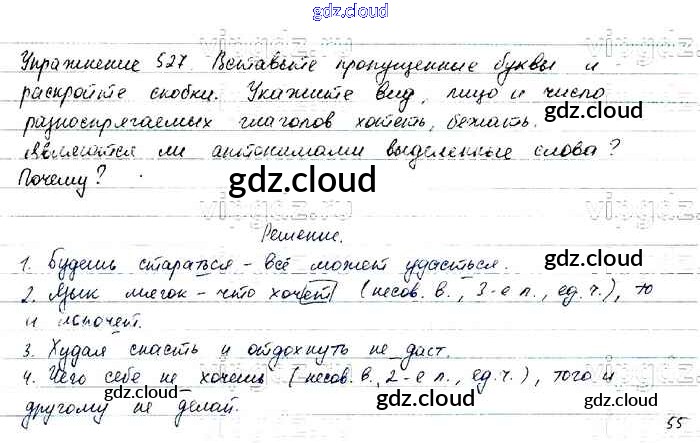 gdz.cloud
Упражнение 527. Вставьте пропущенные буквы и
раскройте скобки. Укажите вид, лицо и число
gdz.cloud
разноспрягаемых глаголов хотеть, бежать.
Являются ли антонимами выделенные слова?
Почему?
gdz.cloud
Решение.
1. Будешь стараться - всё может удасться.
gdz.cloud
2. Язык мягок - что хочет (несов. в., 3-е л., ед. ч.), то
и лопочет.
3. Худая снасть и отдохнуть не даст.
4. Чего себе не хочешь (несов. в., 2-е л., ед. ч.), того и
другому не делай.
gdz.cloud
gdz.cloud
gdz.cloud
55